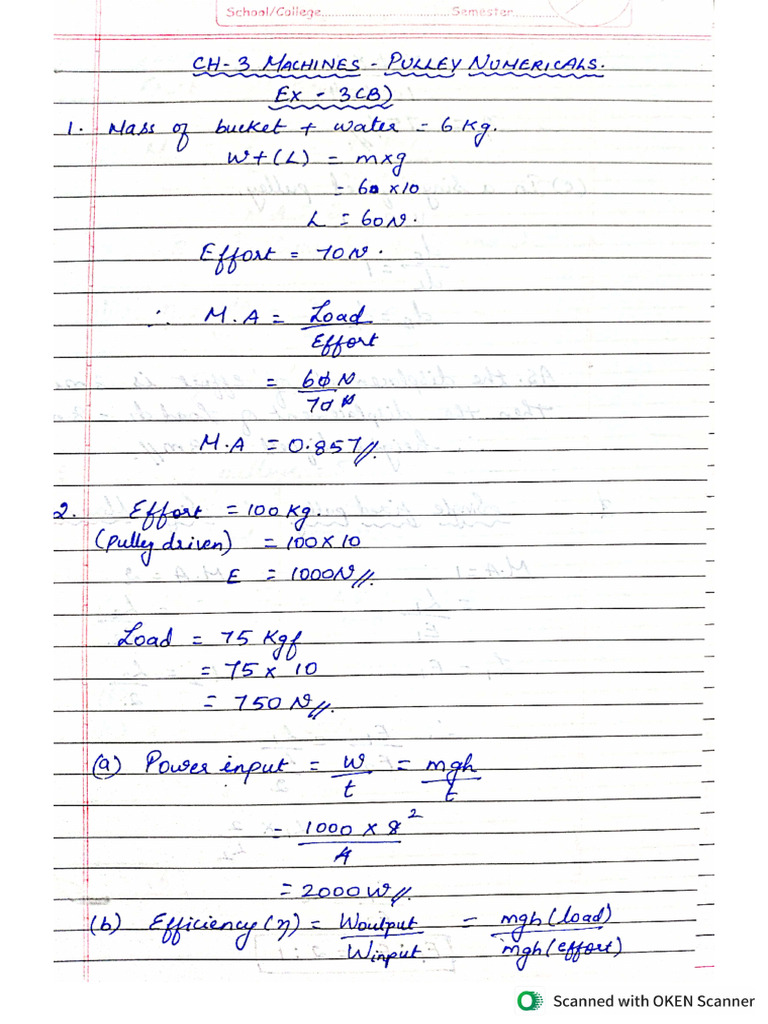 School/College.................... Semester..............
CH-3 MACHINES - PULLEY NUMERICALS.
EX - 3(B)
1. Mass of bucket + water = 6 kg.
Wt(L) = mxg
= 60 x10
L = 60N.
Effort = 70N.
∴ M.A = Load
Effort
= 60 N
70 N
M.A = 0.857//.
2. Effort = 100 Kg.
(pully driven) = 100 x 10
E = 1000N//.
Load = 75 Kgf
= 75 x 10
= 750 N//.
(a) Power input = W = mgh
t t
= 1000 x 8 2
4
= 2000W//.
(b) Efficiency(η) = Woutput = mgh(load)
Winput mgh(effort)
Scanned with OKEN Scanner